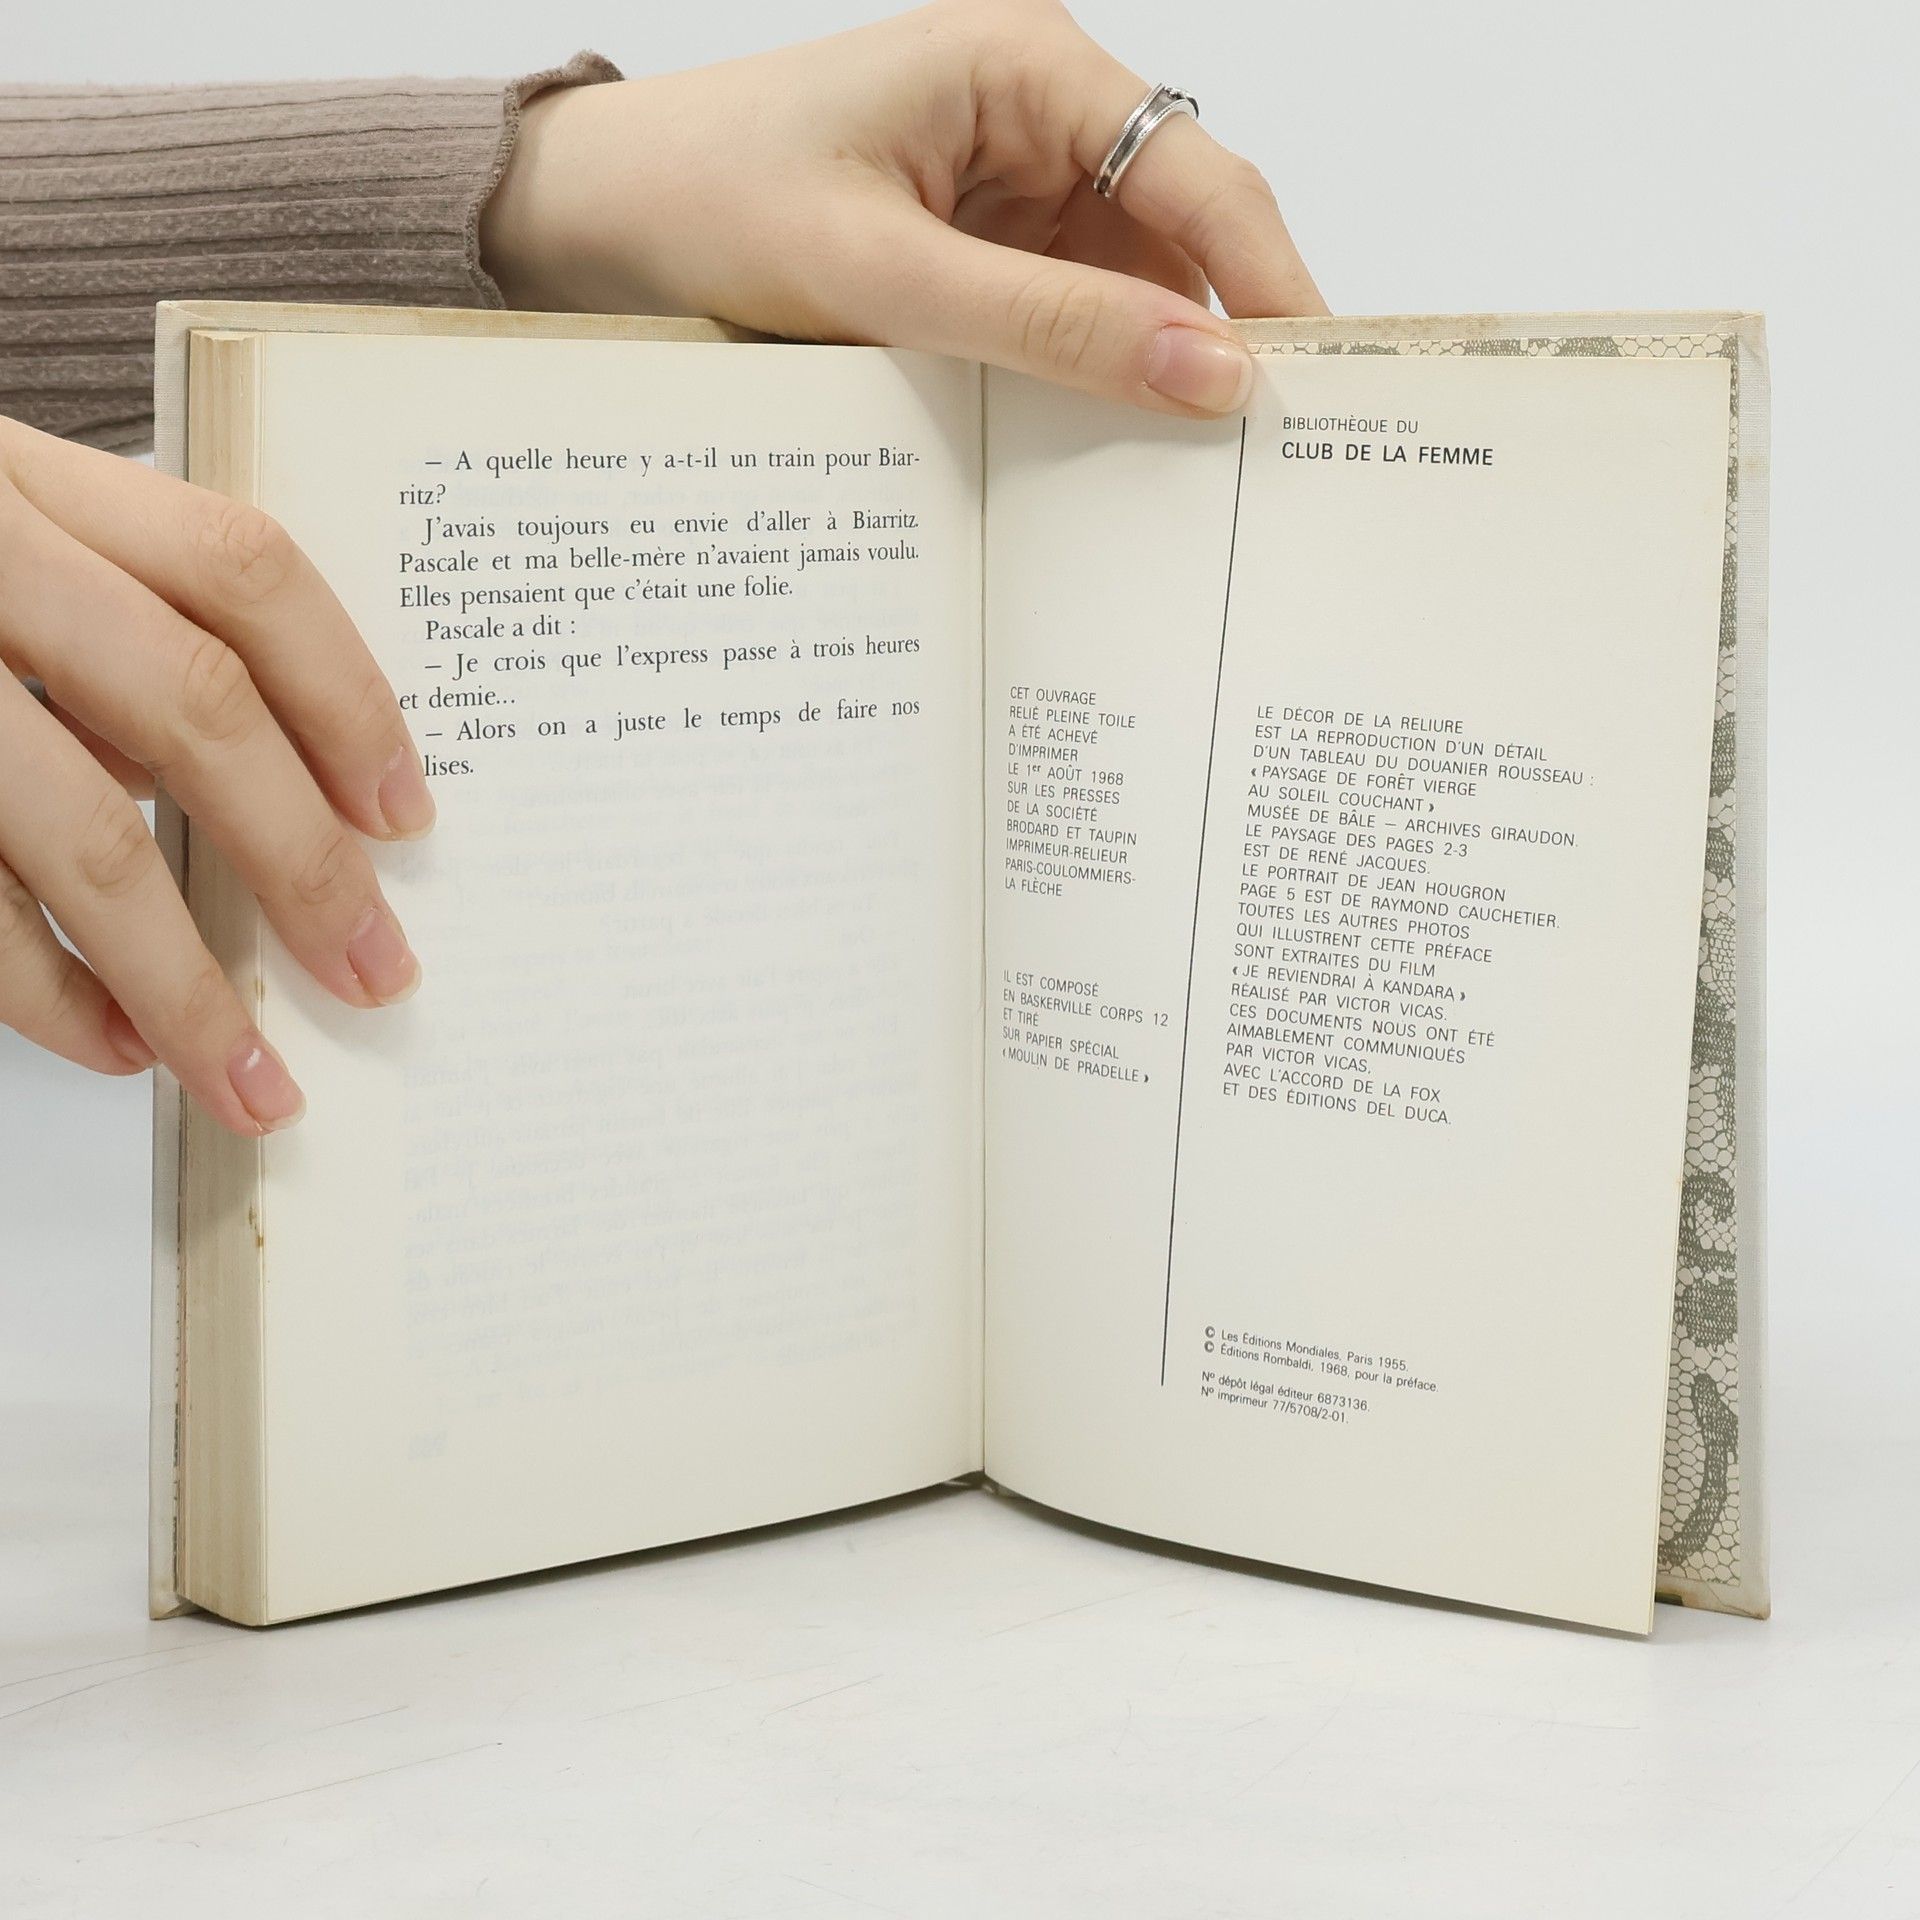 — A quelle heure y a-t-il un train pour Biar-
ritz?
J'avais toujours eu envie d'aller à Biarritz.
Pascale et ma belle-mère n'avaient jamais voulu.
Elles pensaient que c'était une folie.
Pascale a dit :
— Je crois que l'express passe à trois heures
et demie...
— Alors on a juste le temps de faire nos
lises.
BIBLIOTHÈQUE DU
CLUB DE LA FEMME
CET OUVRAGE
RELIÉ PLEINE TOILE
A ÉTÉ ACHEVÉ
D'IMPRIMER
LE 1er AOÛT 1968
SUR LES PRESSES
DE LA SOCIÉTÉ
BRODARD ET TAUPIN
IMPRIMEUR-RELIEUR
PARIS-COULOMMIERS-
LA FLÈCHE
IL EST COMPOSÉ
EN BASKERVILLE CORPS 12
ET TIRÉ
SUR PAPIER SPÉCIAL
« MOULIN DE PRADELLE »
LE DÉCOR DE LA RELIURE
EST LA REPRODUCTION D'UN DÉTAIL
D'UN TABLEAU DU DOUANIER ROUSSEAU :
« PAYSAGE DE FORÊT VIERGE
AU SOLEIL COUCHANT »
MUSÉE DE BÂLE — ARCHIVES GIRAUDON.
LE PAYSAGE DES PAGES 2-3
EST DE RENÉ JACQUES.
LE PORTRAIT DE JEAN HOUGRON
PAGE 5 EST DE RAYMOND CAUCHETIER.
TOUTES LES AUTRES PHOTOS
QUI ILLUSTRENT CETTE PRÉFACE
SONT EXTRAITES DU FILM
« JE REVIENDRAI À KANDARA »
RÉALISÉ PAR VICTOR VICAS.
CES DOCUMENTS NOUS ONT ÉTÉ
AIMABLEMENT COMMUNIQUÉS
PAR VICTOR VICAS,
AVEC L'ACCORD DE LA FOX
ET DES ÉDITIONS DEL DUCA.
© Les Éditions Mondiales, Paris 1955.
© Éditions Rombaldi, 1968, pour la préface.
Nº dépôt légal éditeur 6873136.
Nº imprimeur 77/5708/2-01.